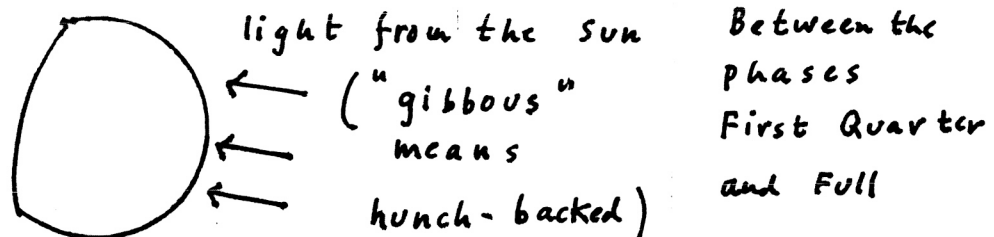 light from the sun
("gibbous"
means
hunch-backed)
Between the
phases
First Quarter
and Full